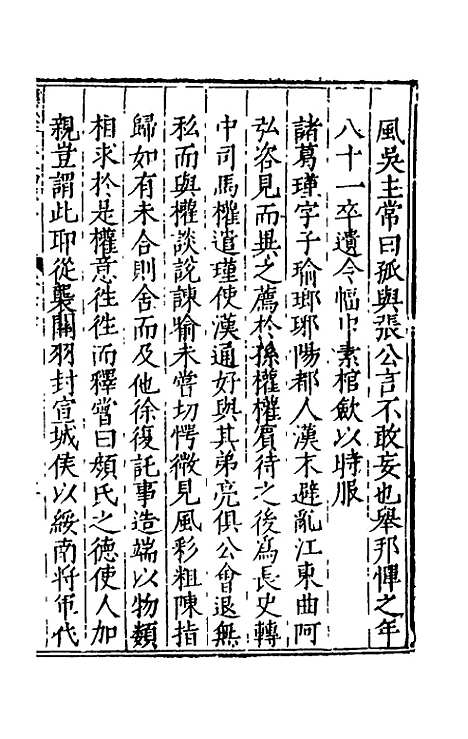 風吳主常曰孤與張公言不敢妄也舉邦憚之年
八十一卒遺令幅巾素棺歛以時服
諸葛瑾字子瑜瑯琊陽都人漢末避亂江東曲阿
弘咨見而異之薦於孫權權賔待之後爲長史轉
中司馬權遣瑾使漢通好與其弟亮俱公會退無
私而與權談說諫喻未嘗切愕微見風彩粗陳指
歸如有未合則舍而及他徐復託事造端以物類
相求於是權意往往而釋嘗曰顏氏之德使人加
親豈謂此耶從襲關羽封宣城侯以綏南將軍代